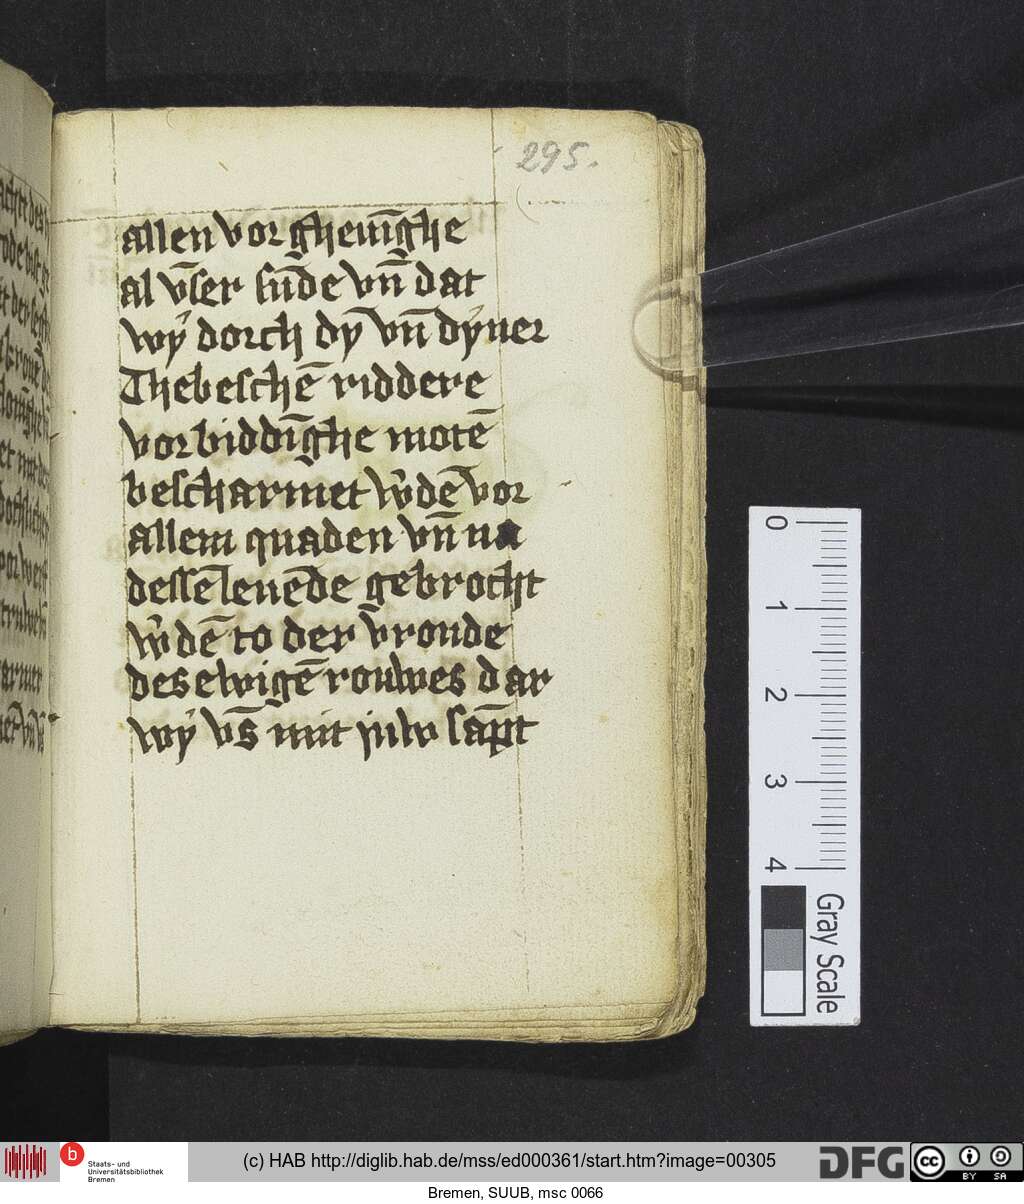 295.
allen vorgheuīghe
al v̄ser sūde vn̄ dat
wẏ dorch dẏ vn̄ dẏner
Thebeschē riddere
vorbiddīghe motē
bescharmet w̉dē vor
allem quaden vn̄ na
desse leuēde gebrocht
w̉dē to der vronde
des ewigē rouwes dar
wẏ vs̄ mit juw sāpt
0
1
2
3
4
Gray Scale
b
Staats- und
Universitätsbibliothek
Bremen
(c) HAB http://diglib.hab.de/mss/ed000361/start.htm?image=00305
DFG
cc
BY SA
Bremen, SUUB, msc 0066